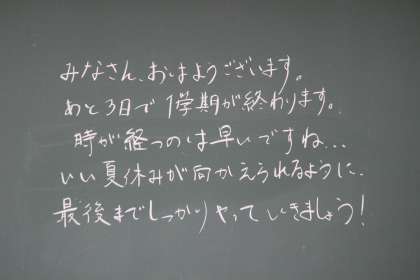 みなさん、おはようございます。
あと3日で1学期が終わります。
時が経つのは早いですね...
いい夏休みが向かえられるように、
最後までしっかりやっていきましょう!